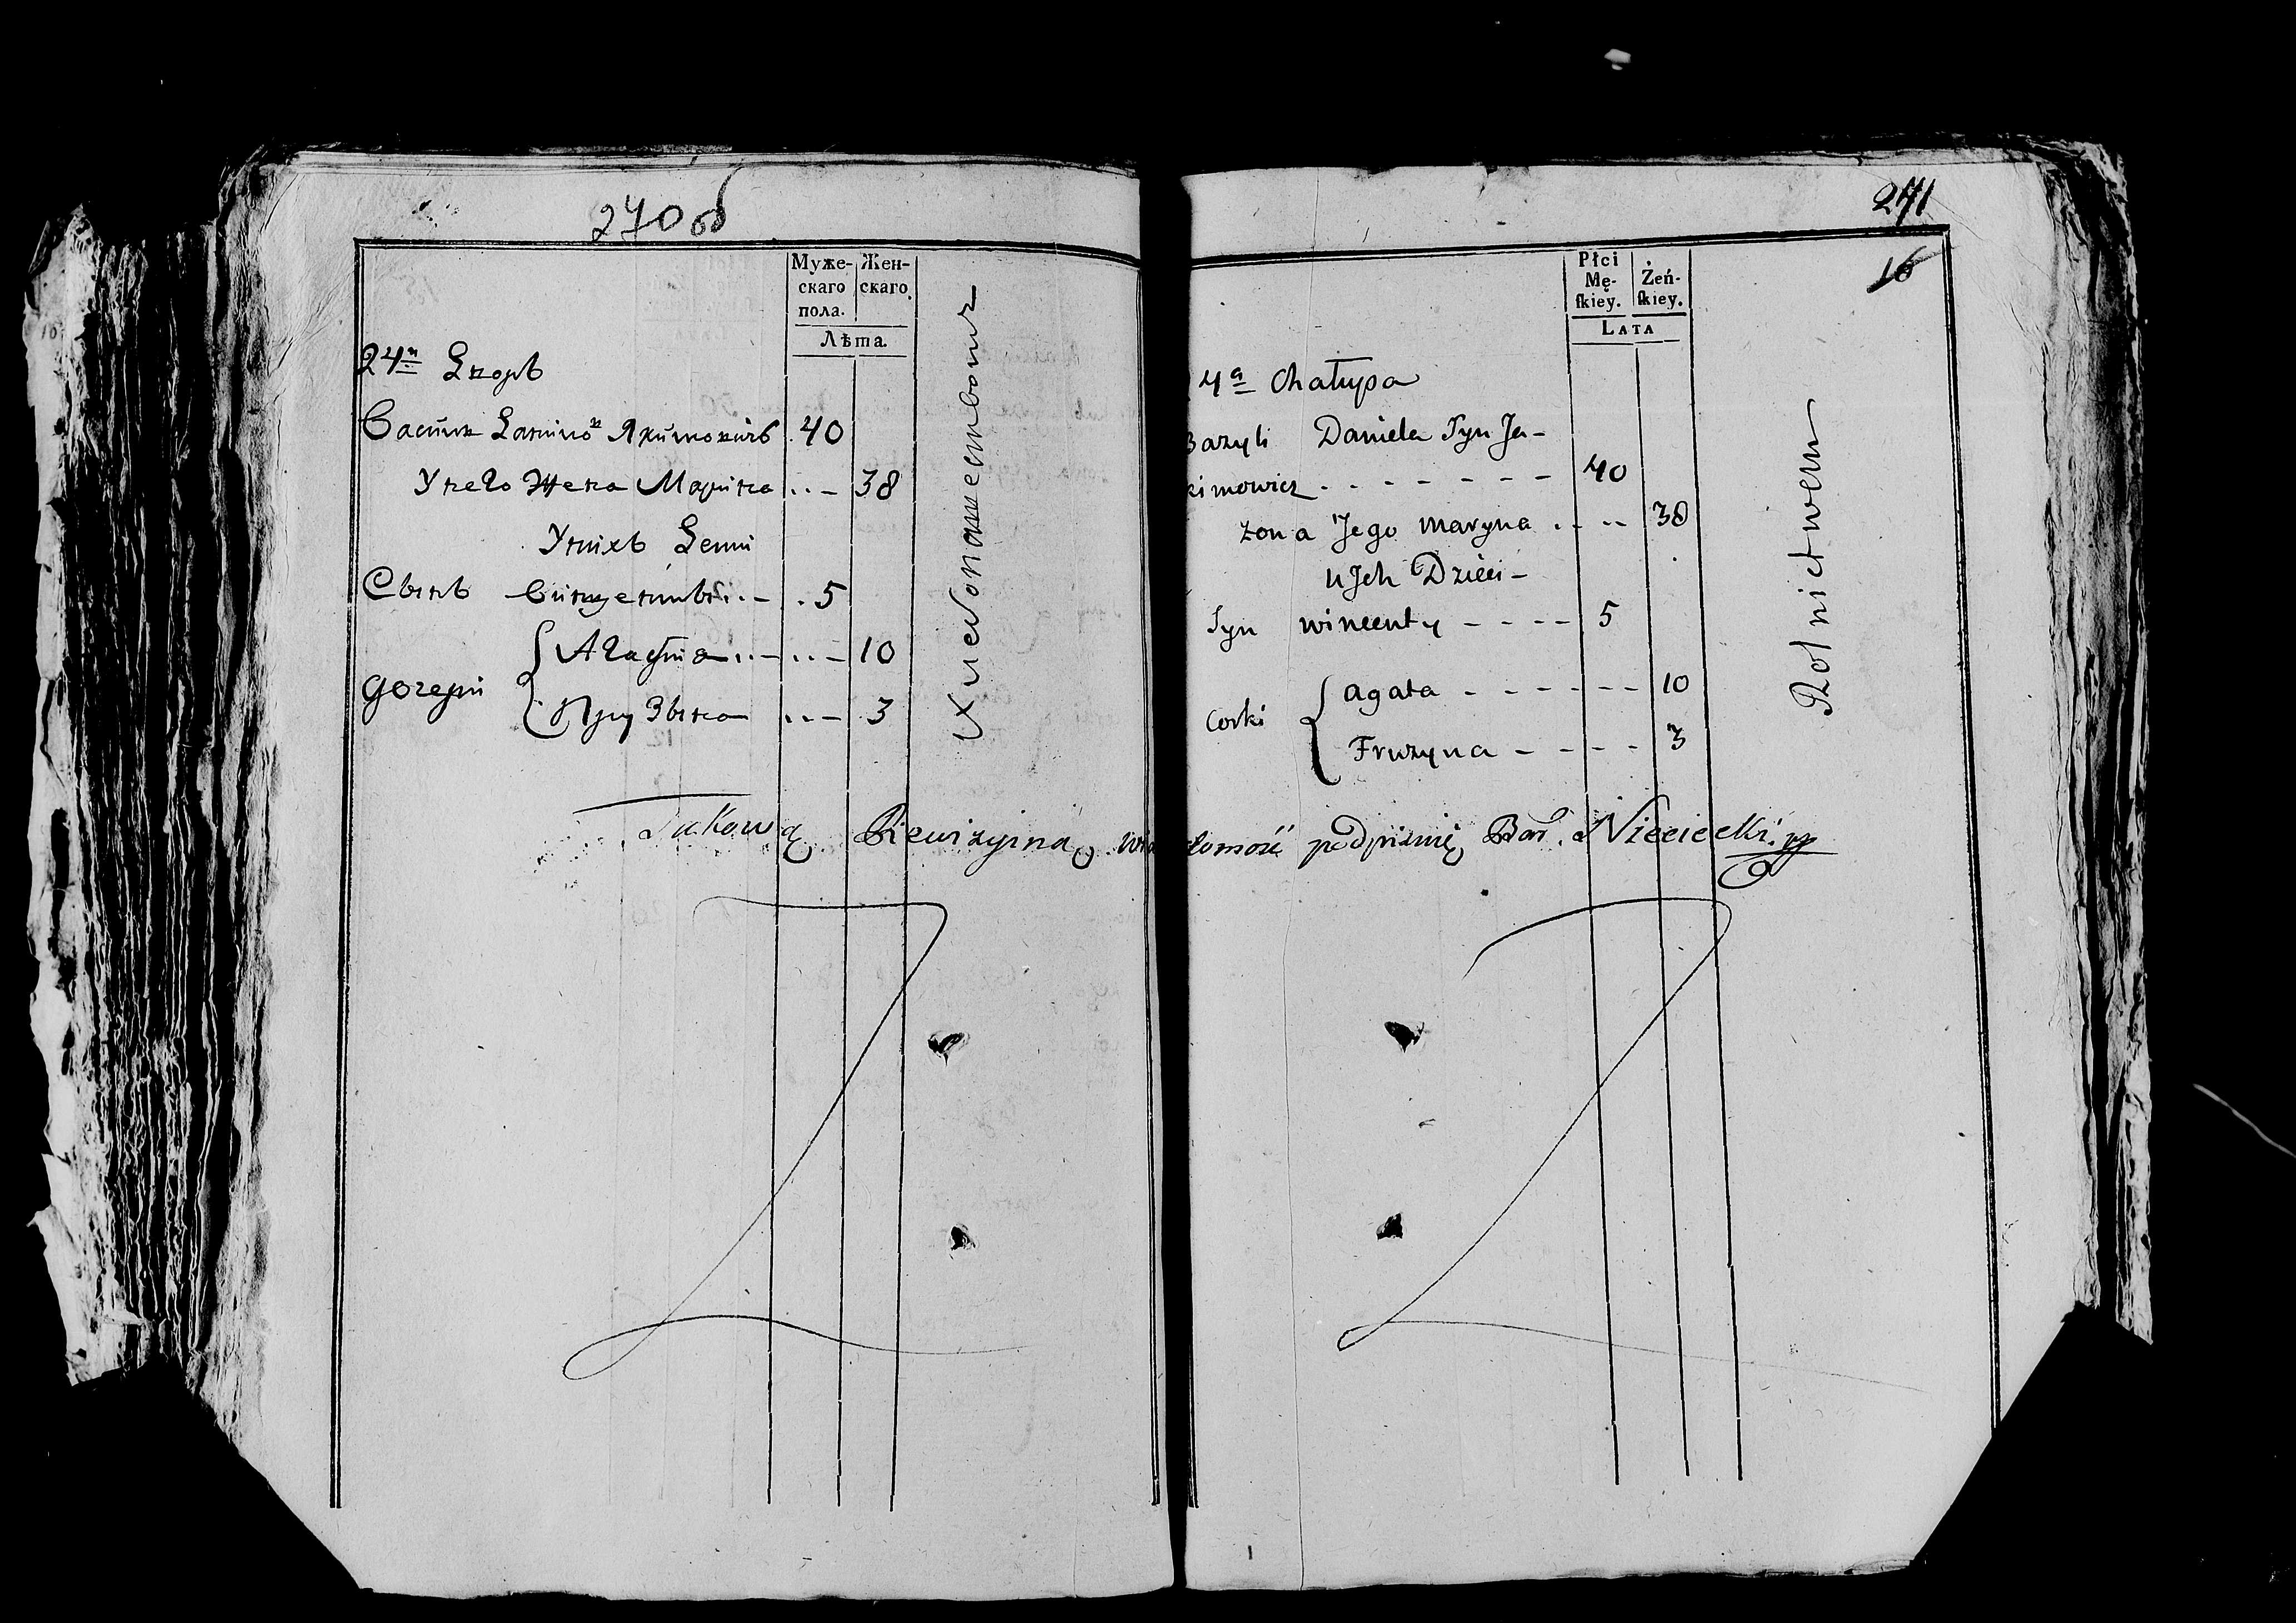 270 об
Муже-
скаго
пола.
Жен-
скаго.
Лѣта.
24й Дворъ
Васили Данило Якимовичъ 40
У него Жена Марина 38
У нихъ Дети
Сынъ Винцентый 5
дочери { Агафиа 10
Прузына 3
Хлебопашествомъ
271
16
Płci
Mę-
skiey.
Żeń-
skiey.
LATA
4a Chałupa
Bazyli Daniela Syn Ja-
kimowicz 40
żona Jego Maryna 38
u Jch Dzieci
Syn wincenty 5
Corki { agata 10
Fruzyna 3
Rolnictwem
Takową Riewizyiną wiadomość podpisuię Bar. Nieciecki. pp